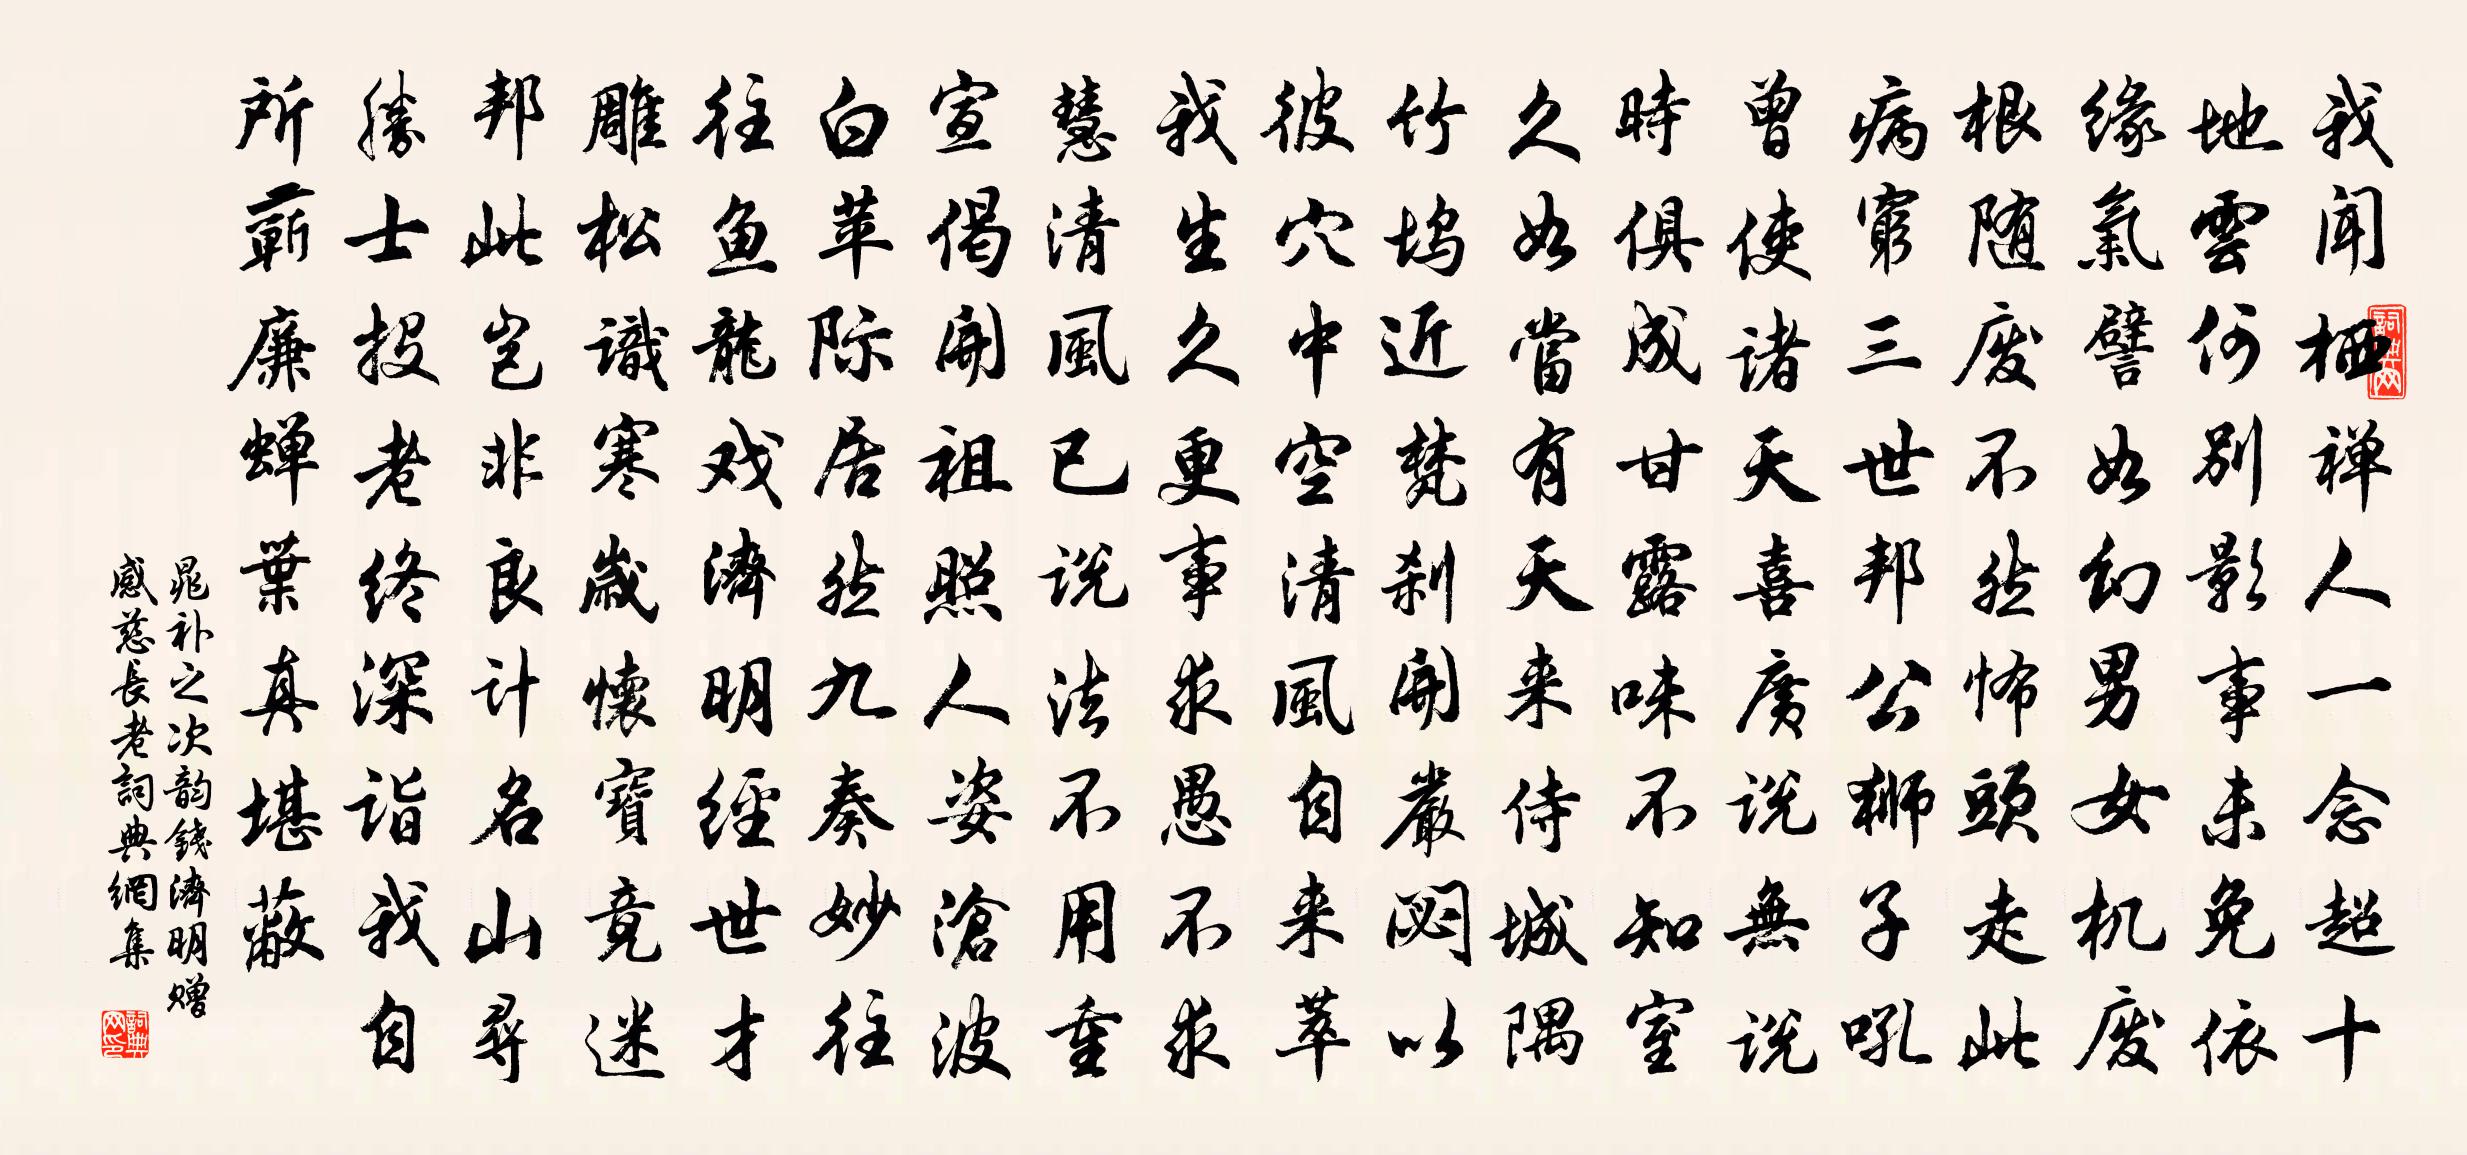 我聞栖禅人一念超十
地雲何别影事未免依
缘氣譬如幻男女机废
根随废不然怖頭走此
病窮三世邦公狮子吼
曾使诸天喜廣说無说
時俱成甘露味不知室
久如當有天来侍城隅
竹坞近梵刹開嚴閟以
彼穴中空清風自来萃
我生久更事求愚不求
慧清風已说法不用重
宣偈開祖照人姿滄波
白苹际居然九奏妙往
往鱼龍戏濟明經世才
雕松識寒歲懷寶竟迷
邦此岂非良计名山尋
勝士投老终深诣我自
所蕲廉蝉葉真堪蔽
晁补之次韵錢濟明赠
感慈長老詞典網集
詞典网印